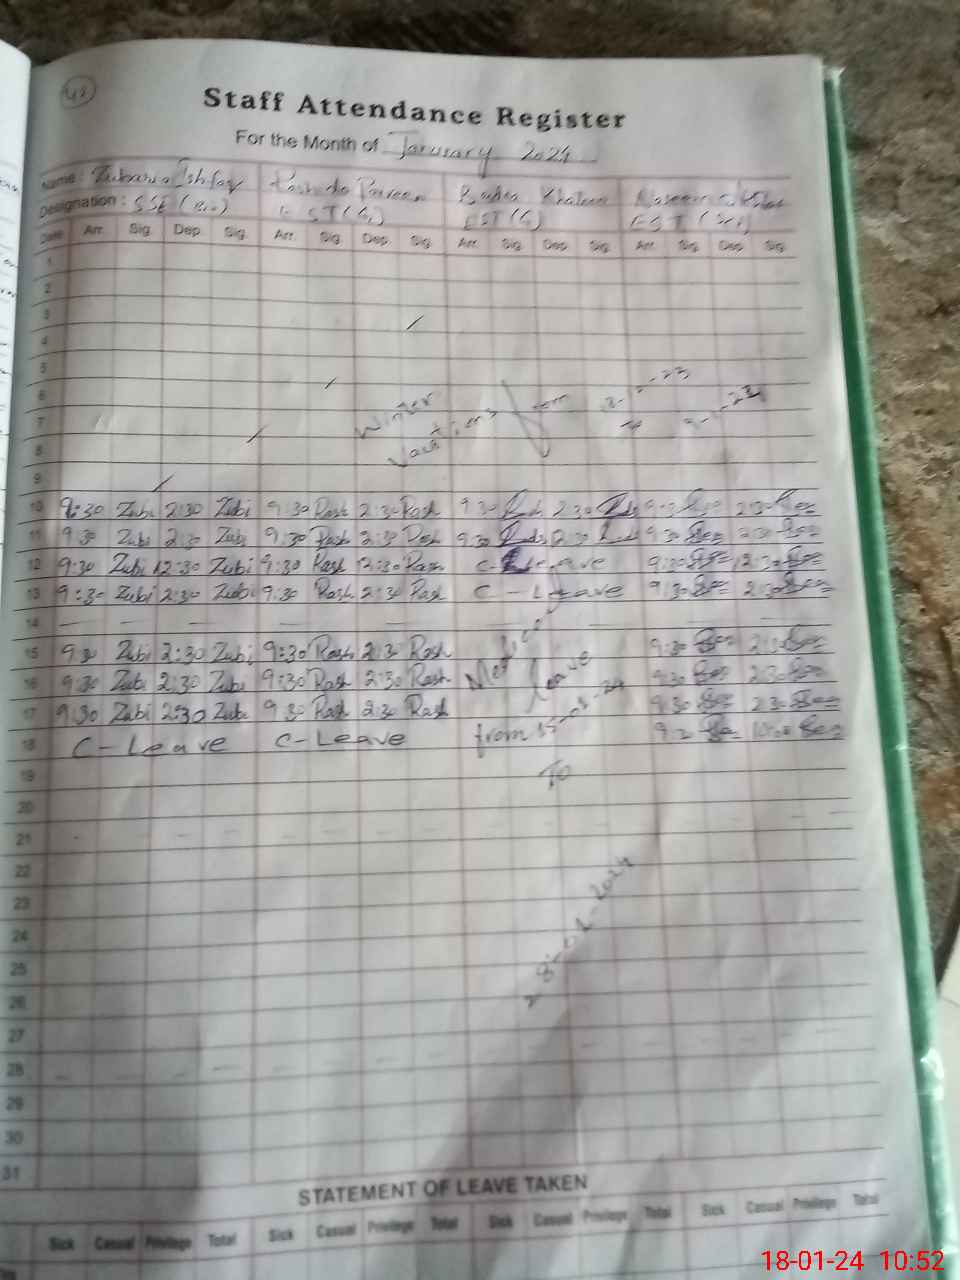 42
Staff Attendance Register
For the Month of January 2024
Name : Zubaria Ishfaq Rashida Parveen Khatoon
Designation : SSE EST EST EST
Date Arr. Sig. Dep. Sig. Arr. Sig. Dep. Sig. Arr. Sig. Dep. Sig. Arr. Sig. Dep. Sig.
1
2
3
4
5
6
7
8
9
Winter
Vacations from
10 9:30 Zubi 2:30 Zubi 9:30 Rash 2:30 Rash 9:30 2:30 9:30 2:30
11 9:30 Zubi 2:30 Zubi 9:30 Rash 2:30 Rash 9:30 2:30 9:30 2:30
12 9:30 Zubi 12:30 Zubi 9:30 Rash 12:30 Rash C-Leave 9:30 12:30
13 9:30 Zubi 2:30 Zubi 9:30 Rash 2:30 Rash C-Leave 9:30 2:30
14
15 9:30 Zubi 2:30 Zubi 9:30 Rash 2:30 Rash 9:30 2:30
16 9:30 Zubi 2:30 Zubi 9:30 Rash 2:30 Rash 9:30 2:30
17 9:30 Zubi 2:30 Zubi 9:30 Rash 2:30 Rash 9:30 2:30
18 C-Leave C-Leave
Medical
leave
from 15-01-24
To
28-01-2024
19
20
21
22
23
24
25
26
27
28
29
30
31
STATEMENT OF LEAVE TAKEN
Sick Casual Privilege Total Sick Casual Privilege Total Sick Casual Privilege Total Sick Casual Privilege Total
18-01-24 10:52